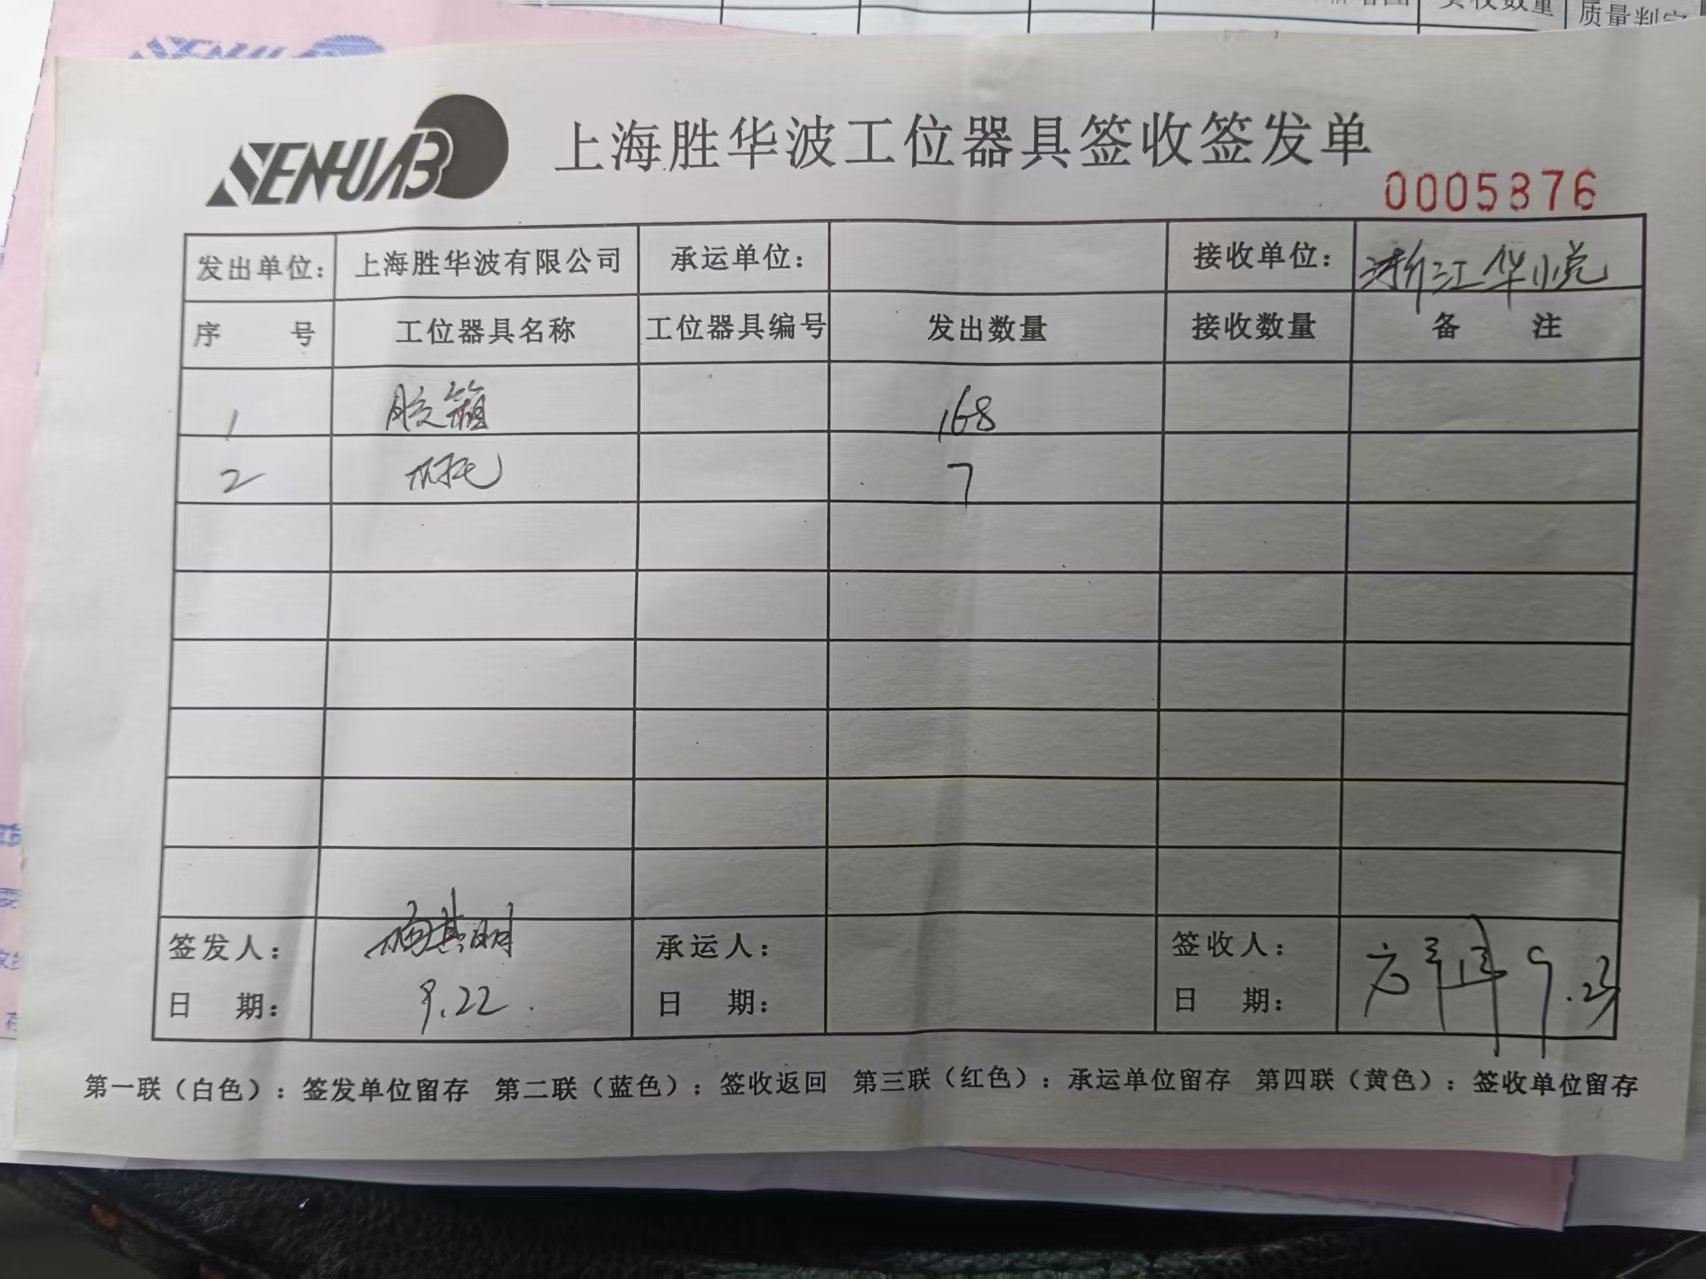 实收数量 质量判定
SENHUAB
上海胜华波工位器具签收签发单
0005876
发出单位: 上海胜华波有限公司 承运单位: 接收单位: 浙江华悦
序 号 工位器具名称 工位器具编号 发出数量 接收数量 备 注
1 胶箱 168
2 木托 7
签发人: 承运人: 签收人:
日 期: 9.22. 日 期: 日 期: 9.23
第一联（白色）: 签发单位留存 第二联（蓝色）: 签收返回 第三联（红色）: 承运单位留存 第四联（黄色）: 签收单位留存